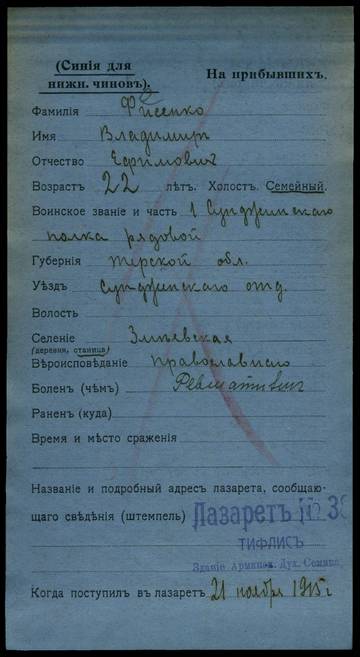 (Синія для
нижн. чиновъ).
На прибывшихъ.
Фамилія Фисенко
Имя Владимиръ
Отчество Ефимович
Возрастъ 22 лѣтъ. Холост. Семейный.
Воинское званіе и часть 1 Сунджинскаго
полка рядовой
Губернія Терской обл.
Уѣздъ Сунджинскаго отд.
Волость
Селеніе
(деревня, станица)
Вѣроисповѣданіе православнаго
Боленъ (чѣмъ) Ревматизм
Раненъ (куда)
Время и мѣсто сраженія
Названіе и подробный адресъ лазарета, сообщаю-
щаго свѣдѣнія (штемпель) Лазаретъ № 38
ТИФЛИСЪ
Зданіе Армянск. Дух. Семин.
Когда поступилъ въ лазаретъ 21 ноября 1915 г